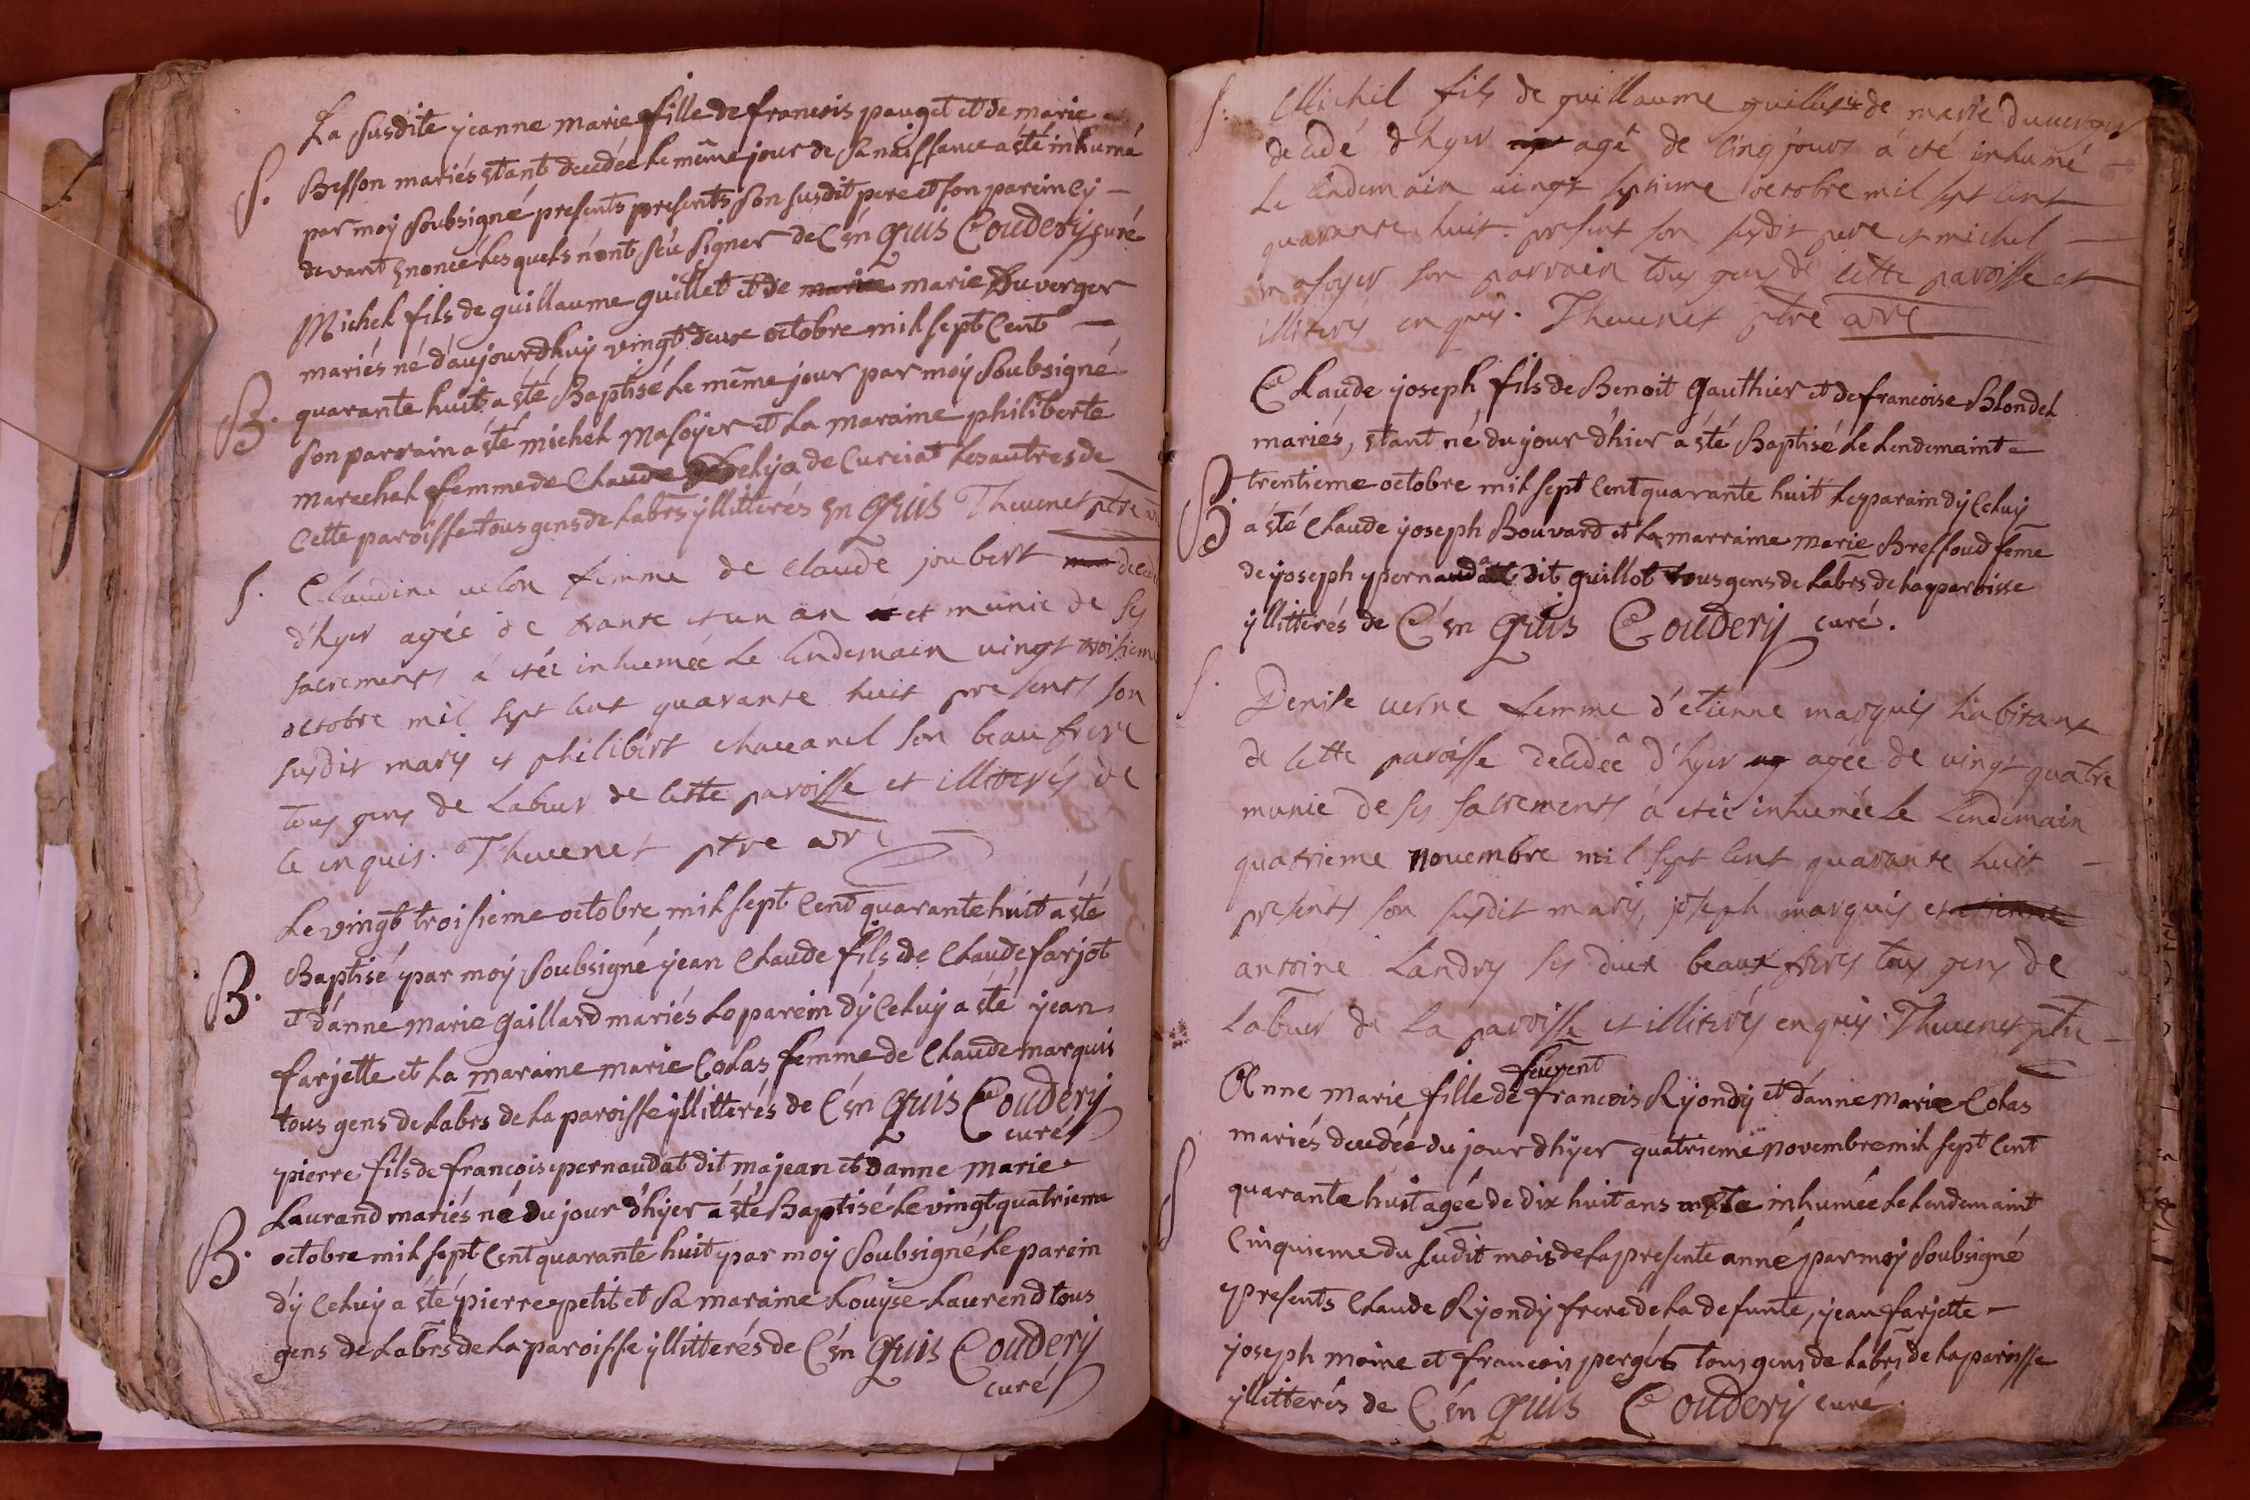 La susdite yeanne marie fille de francois pauget et de marie
S. Besson mariés etant decedée le même jour de sa naissance a été inhumé
par moy soubsigné presents presents son susdit pere et son parein cy
devant enoncé lesquels n'ont sçeu signer de C'en Quis Coudery curé
Michel fils de guillaume guillet et de marie marie Duverger
mariés né d'aujourdhuy vingt deux octobre mil sept Cent
B. quarante huit a été Baptisé le même jour par moy soubsigné
son parrain a été michel masoyer et la maraine philiberte
marechal femme de Claude de Curciat les autres de
Cette paroisse tous gens de labrs yllitterés en Quis Thevenet ptre
S. Claudine velon femme de claude joubert deced
d'hyer agée de trante et un an et munie de ses
sacrements a etée inhumée le lendemain vingt troisieme
octobre mil sept cent quarante huit presents son
susdit mary et philibert chavanel son beau frere
tous gens de labeur de cette paroisse et illiterés de
ce enquis. Thevenet ptre
Le vingt troisieme octobre mil sept Cent quarante huit a été
B. Baptisé par moy soubsigné yean Claude fils de Claude farjot
et d'anne marie gaillard mariés le parein d'y Celuy a été yean
farjette et la maraine marie Colas femme de Claude marquis
tous gens de labrs de la paroisse yllitterés de C'en Quis Coudery
curé
pierre fils de francois pernaudat dit majean et d'anne marie
Laurand mariés né du jour d'hÿer a été Baptisé le vingt quatrieme
B. octobre mil sept Cent quarante huit par moy soubsigné le parein
d'y Celuy a été pierre petit et sa maraine Louÿse Laurend tous
gens de labrs de la paroisse yllitterés de C'en Quis Coudery
curé
S. Michel fils de guillaume guillet de marie duverger
decedé d'hyer agé de cinq jours a eté inhumé
le lendemain vingt septieme octobre mil sept cent
quarante huit. present son susdit pere et michel
masoyer son parrain tous gens de cette paroisse et
illiterés enquis. Thevenet ptre
Claude yoseph fils de Benoit Gauthier et de francoise Blondel
mariés, etant né du jour d'hier a été Baptisé le lendemaint
B. trentieme octobre mil sept Cent quarante huit le parain d'y Celuy
a été Claude yoseph Bouvard et la marraine marie Bressoud feme
de yoseph dit guillot tous gens de labrs de la paroisse
yllitterés de C'en Quis Coudery curé.
S. Denise verne femme d'etienne marquis habitant
de cette paroisse decedée d'hyer agée de vingt quatre
munie de ses sacrements a etée inhumée le lendemain
quatrieme novembre mil sept cent quarante huit
presents son susdit mary, joseph marquis et etienne
antoine Landry ses deux beaux freres tous gens de
labeur de la paroisse et illiterés enquis. Thevenet ptre
feurent
Anne marie fille de francois Ryondy et d'anne marie Colas
mariés decedée du jour d'hÿer quatrieme novembre mil sept Cent
S quarante huit agée de dix huit ans inhumée le lendemaint
Cinquieme du sudit mois de la presente anné par moy soubsigné
presents Claude Ryondy frere de la defunte, yean farjette
yoseph moine et francois perget tous gens de labrs de la paroisse
yllitterés de C'en Quis Coudery curé.